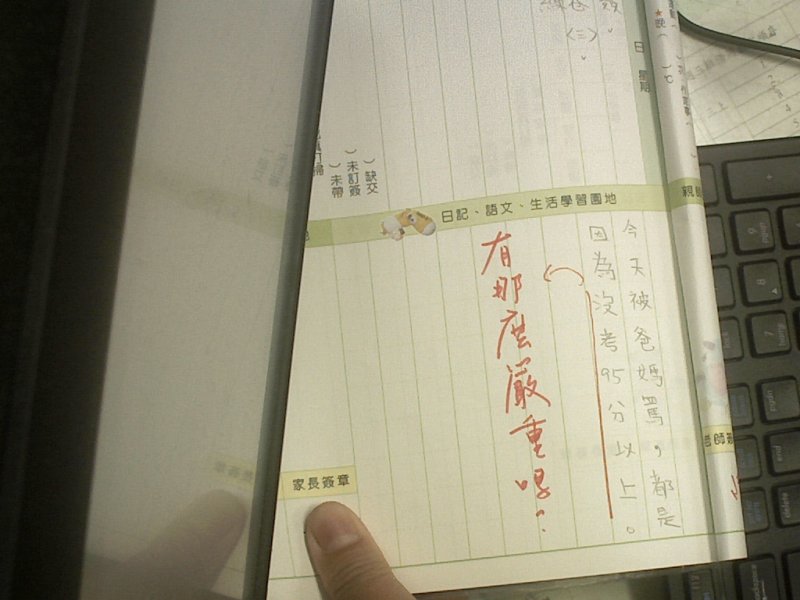 日 星期
缺交
未訂簽
未帶
日記、語文、生活學習園地
今天被爸媽罵，都是
因為沒考95分以上。
有那麼嚴重嗎？
家長簽章